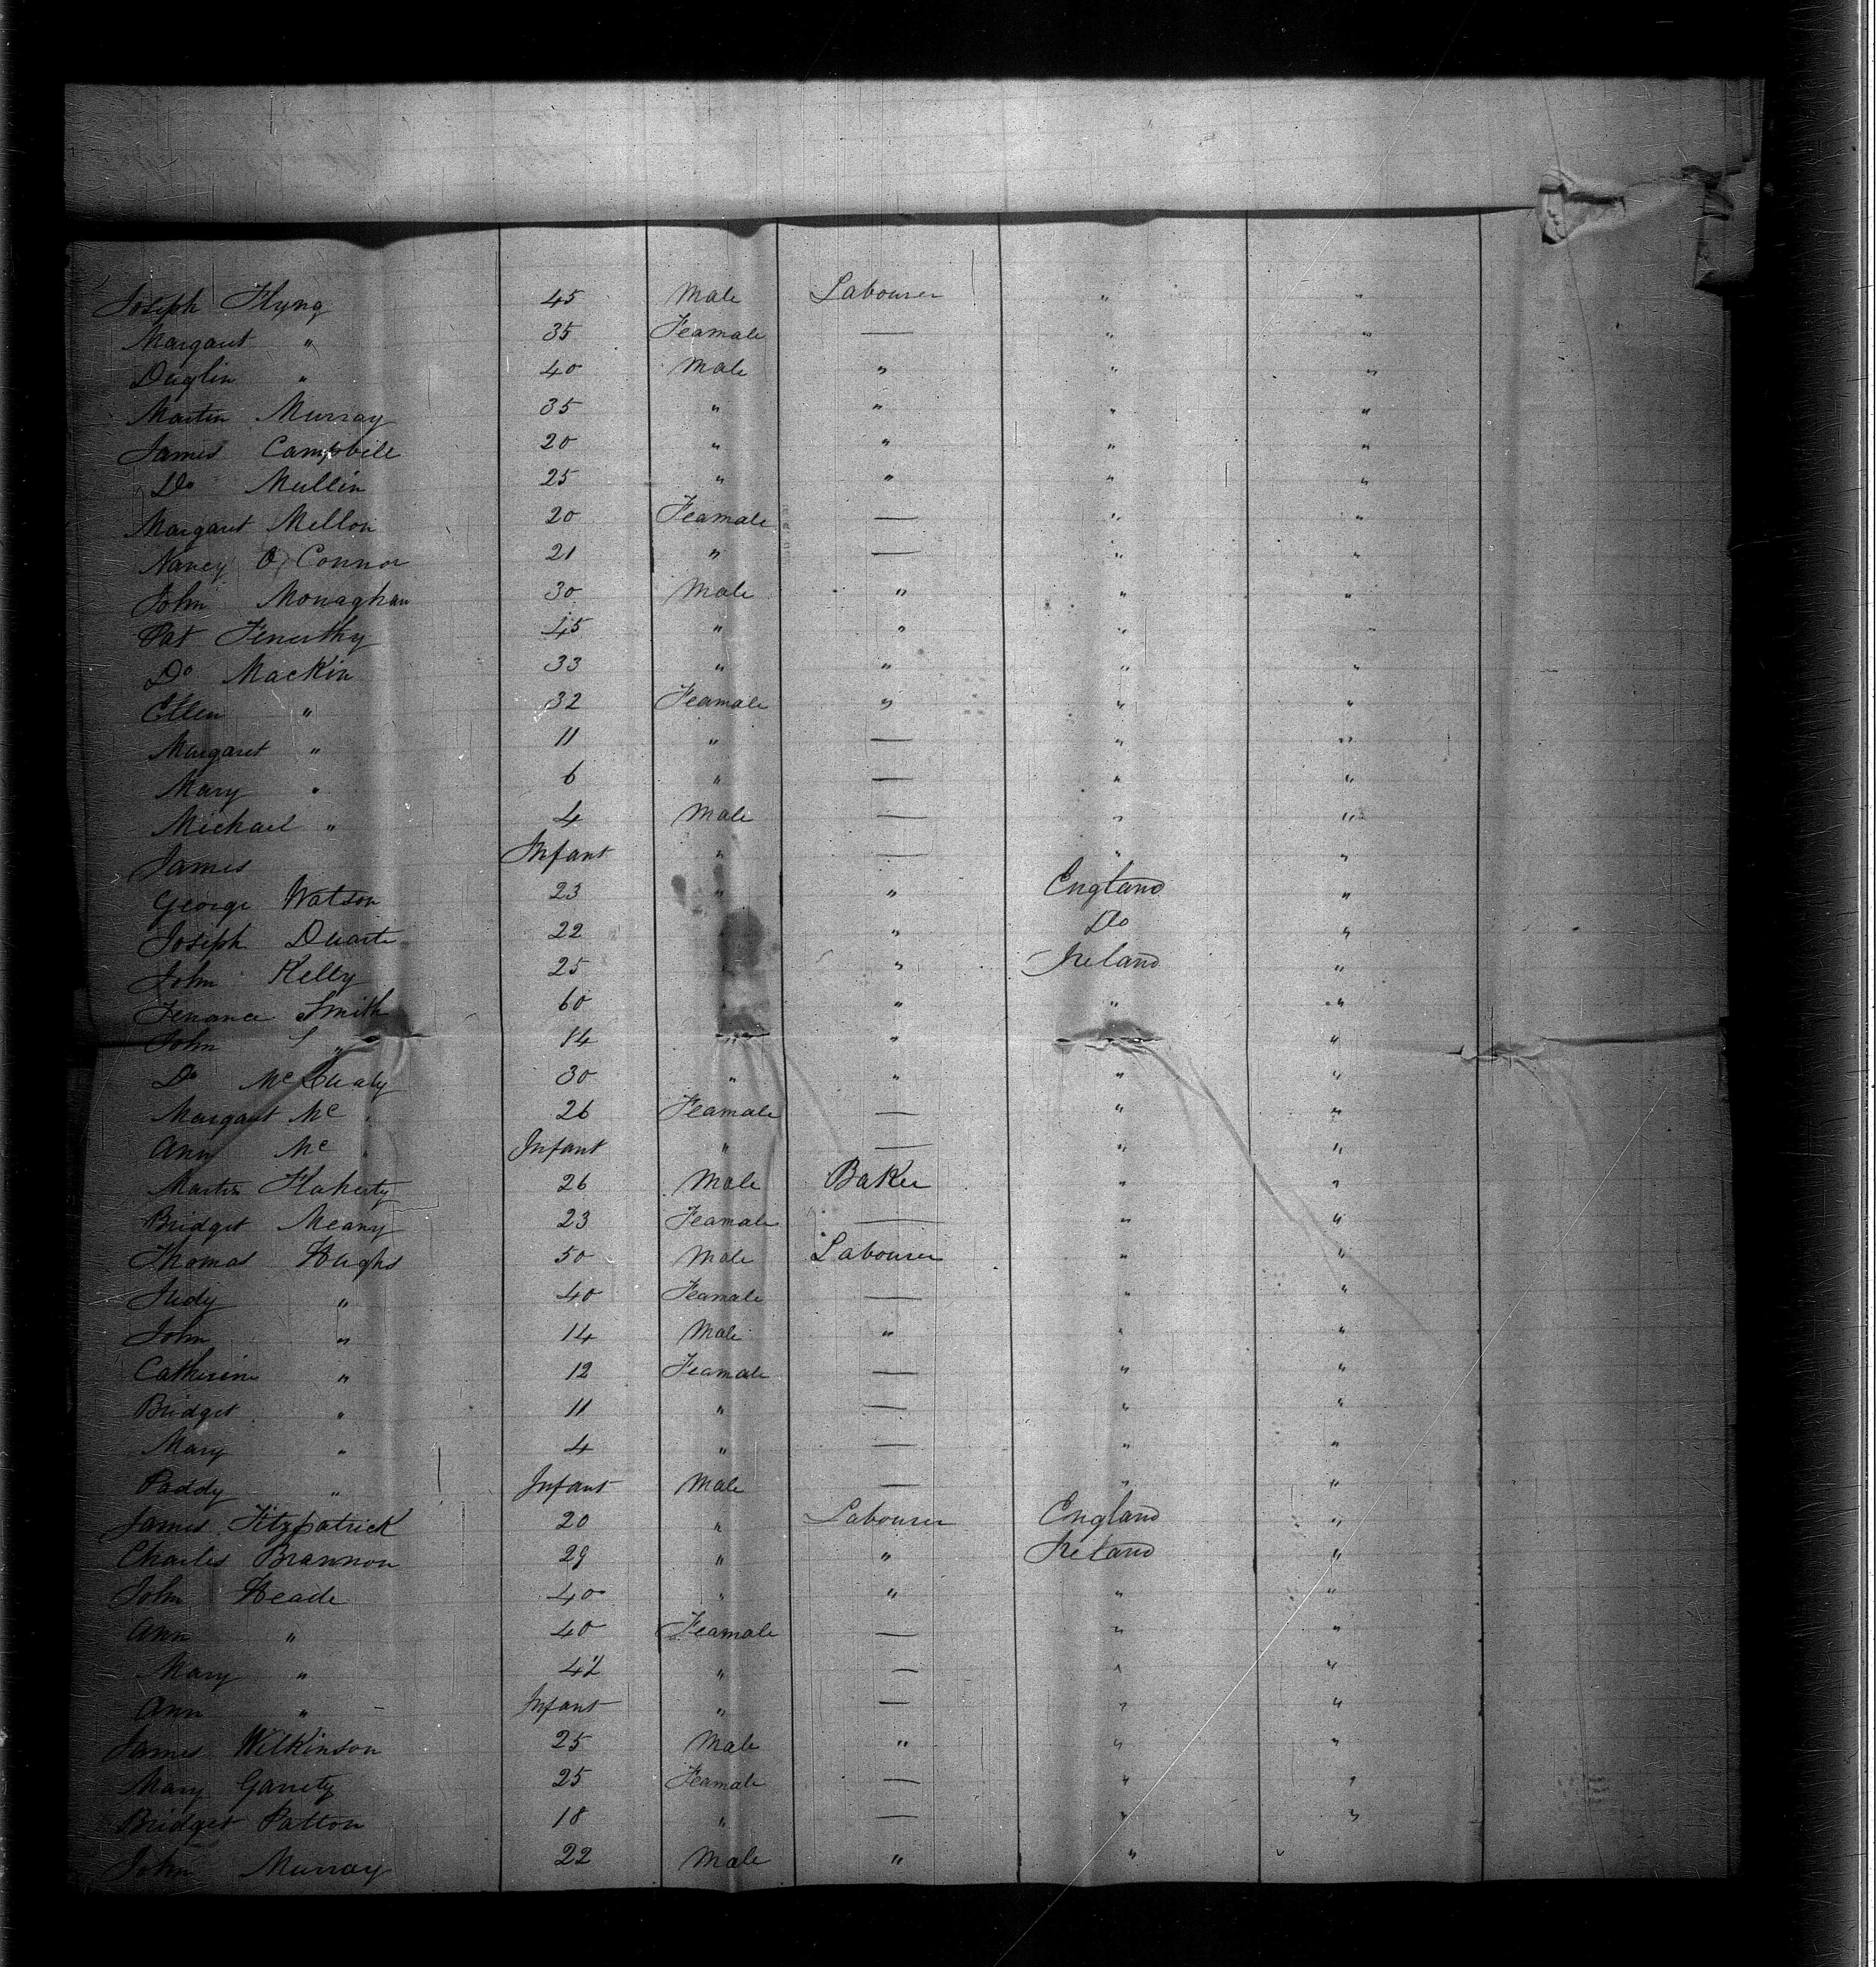 Joseph Flyng 45 Male Labourer " "
Margaret " 35 Feamale — " "
Duglin " 40 Male " " "
Martin Murray 35 " " " "
James Campbill 20 " " " "
Do Mullin 25 " " " "
Margaret Mellon 20 Feamale — " "
Nancy O Connor 21 " — " "
John Monaghan 30 Male " " "
Pat Fenerthy 45 " " " "
Do Mackin 33 " " " "
Ellen " 32 Feamale " " "
Margaret " 11 " — " "
Mary " 6 " — " "
Michael " 4 Male — " "
James Infant " — " "
George Watson 23 " " England "
Joseph Duarte 22 " Do "
John Kelly 25 " Ireland "
Terrance Smith 60 " " "
John S " 14 " " " "
Do Mc 30 " " " "
Margaret Mc " 26 Feamale — " "
Ann Mc " Infant " — " "
Martin Flaherty 26 Male Baker " "
Bridget Meany 23 Feamale — " "
Thomas Hughs 50 Male Labourer " "
Judy " 40 Feamale — " "
John " 14 Male " " "
Catherine " 12 Feamale — " "
Bridget " 11 " — " "
Mary " 4 " — " "
Paddy " Infant Male — " "
James Fitzpatrick 20 " Labourer England "
Charles Brannon 29 " " Ireland "
John Heade 40 " " " "
Ann " 40 Feamale — " "
Mary " 42 " — " "
Ann " Infant " — " "
James Wilkinson 25 Male " " "
Mary Garrety 25 Feamale — " "
Bridget Patton 18 " — " "
John Murray 22 Male " " "